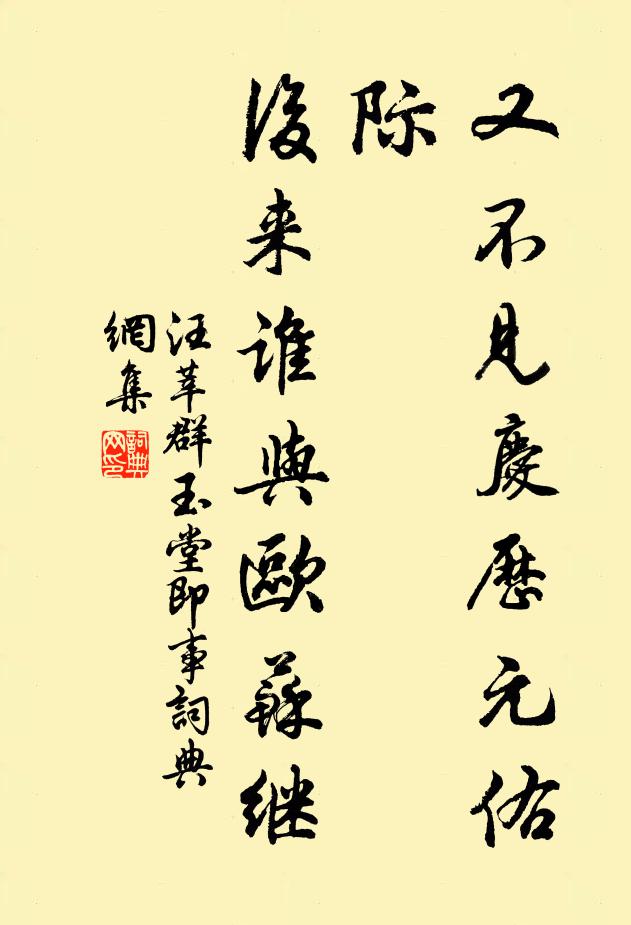 又不见慶歷元佑
际
後来谁與歐蘇继
汪莘群玉堂即事詞典
網集
詞典
网印